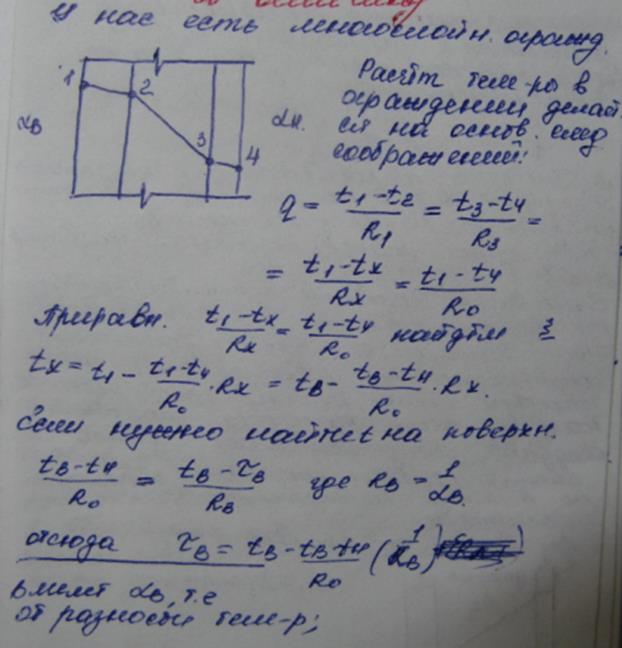 У нас есть многослойн. огражд.
1 2 3 4
αв αн.
Расчёт тем-ры в
ограждении делает
ся на основ. след
соображений:
q = (t1 - t2)/R1 = (t3 - t4)/R3 =
= (t1 - tx)/Rx = (t1 - t4)/R0
Приравн. (t1 - tx)/Rx = (t1 - t4)/R0 найдём
tx = t1 - (t1 - t4)/R0 · Rx = tв - (tв - tн)/R0 · Rx.
Если нужно найти t на поверхн.
(tв - tн)/R0 = (tв - τв)/Rв где Rв = 1/αв.
отсюда τв = tв - (tв - tн)/R0 (1/αв)
αв, т.е
от разности тем-р;